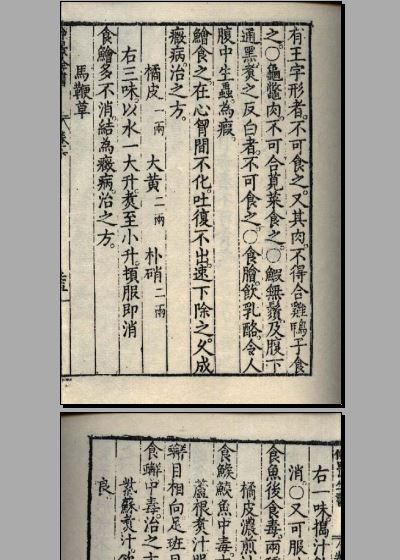 有王字形者不可食之又其肉不得合雞鴨子食
之○龜鱉肉不可合莧菜食之○鰕無鬚及腹下
通黑煑之反白者不可食之○食膾飲乳酪令人
腹中生蟲為瘕
鱠食之在心胷間不化吐復不出速下除之久成
癥病治之方
橘皮一兩 大黃二兩 朴硝二兩
右三味以水一大升煑至小升頓服即消
食鱠多不消結為癥病治之方
馬鞭草
右一味擣汁
消○又可服
食魚後食毒兩
橘皮濃煎汁
食鯸鮧魚中毒
蘆根煮汁服
蠏目相向足班目
食蠏中毒治之方
紫蘇煮汁
良